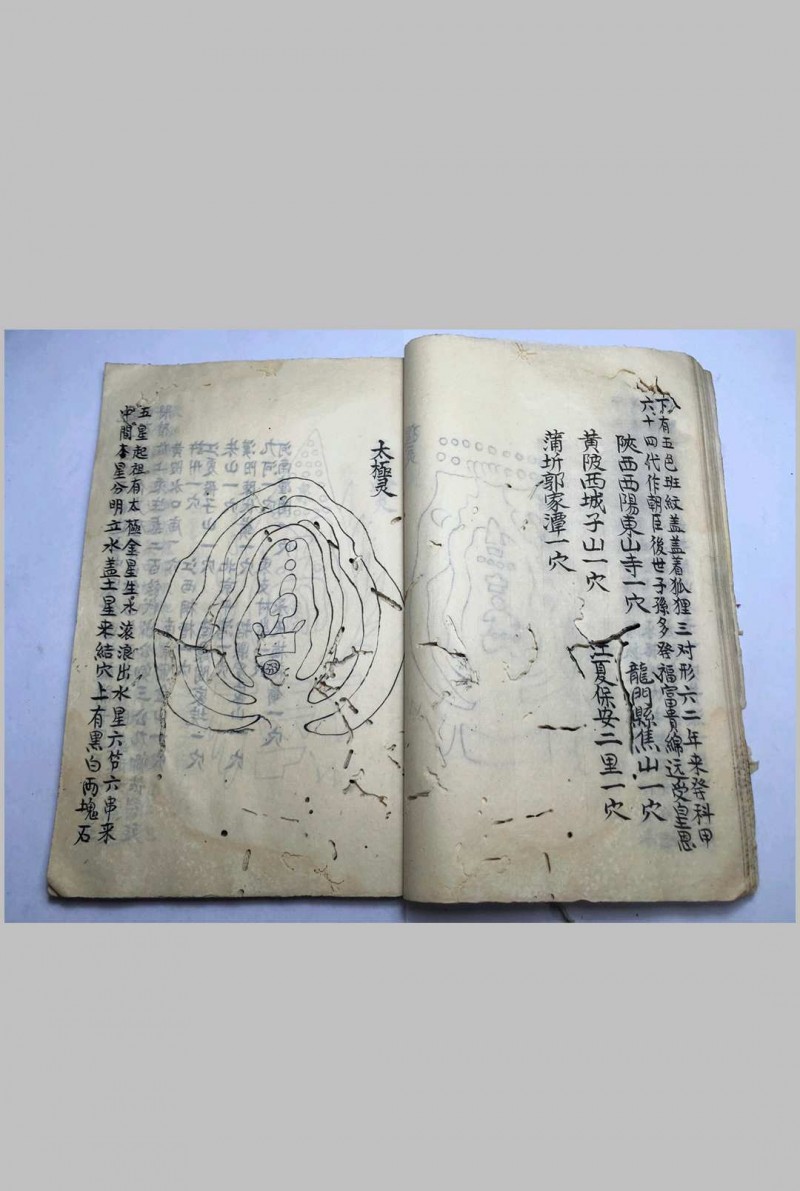 下有五色班紋盖盖着狐狸三对形六二年来發科甲
六十四代作朝臣後世子孫多發福富貴綿远受皇恩
陝西西陽東山寺一穴 龍門縣焦山一穴
黄陂西城子山一穴 江夏保安二里一穴
蒲圻郭家潭一穴
太極灵
五星起祖有太極金星生水滚浪出水星六六串来
中間星分明立水盖土星来結穴上有黑白两塊石